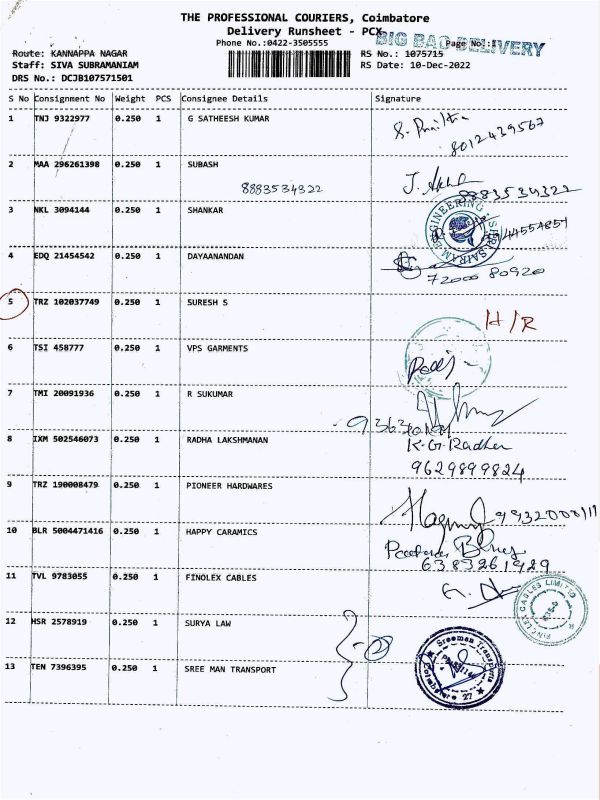 THE PROFESSIONAL COURIERS, Coimbatore
Delivery Runsheet - PCX
BIG BAG DELIVERY
Phone No.:0422-3505555
Page No.:1
Route: KANNAPPA NAGAR
RS No.: 1075715
Staff: SIVA SUBRAMANIAM
RS Date: 10-Dec-2022
DRS No.: DCJB107571501
S No Consignment No Weight PCS Consignee Details Signature
1 TNJ 9322977 0.250 1 G SATHEESH KUMAR
8012439567
2 MAA 296261398 0.250 1 SUBASH
8883534322
8883534322
3 NKL 3094144 0.250 1 SHANKAR
4 EDQ 21454542 0.250 1 DAYAANANDAN
72000 80920
5 TRZ 102037749 0.250 1 SURESH S
H/R
6 TSI 458777 0.250 1 VPS GARMENTS
7 TMI 20091936 0.250 1 R SUKUMAR
8 IXM 502546073 0.250 1 RADHA LAKSHMANAN
K.G.Radha
9629899824
9 TRZ 190008479 0.250 1 PIONEER HARDWARES
10 BLR 5004471416 0.250 1 HAPPY CARAMICS
6383261929
11 TVL 9783055 0.250 1 FINOLEX CABLES
FINOLEX CABLES LIMITED
12 HSR 2578919 0.250 1 SURYA LAW
13 TEN 7396395 0.250 1 SREE MAN TRANSPORT
Sreeman Transports
Coimbatore 27